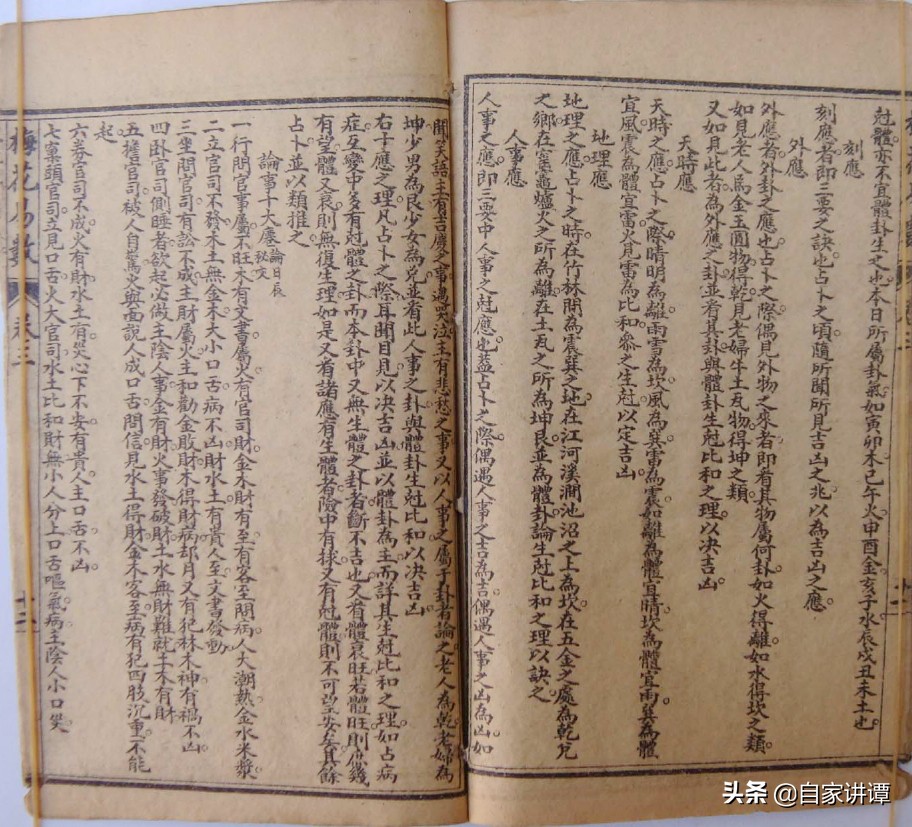 尅體亦不宜體卦生之也本日所屬卦氣如寅卯木巳午火申酉金亥子水辰戌丑未土也
刻應
刻應者即三要之訣也占卜之頃隨所聞所見吉凶之兆以為吉凶之應
外應
外應者外卦之應也占卜之際偶見外物之來者即看其物屬何卦如火得離如水得坎之類
如見老人馬金玉圓物得乾見老婦牛土瓦物得坤之類
又如見此者為外應之卦並看其卦與體卦生尅比和之理以决吉凶
天時應
天時之應占卜之際晴明為離雨雪為坎風為巽雷為震如離為體宜晴坎為體宜雨巽為體
宜風震為體宜雷火見雷為比和參之生尅以定吉凶
地理應
地理之應占卜之時在竹林間為震巽之地在江河溪澗池沼之上為坎在五金之處為乾兌
之鄉在窑竈爐火之所為離在土瓦之所為坤艮並為體卦論生尅比和之理以訣之
人事應
人事之應即三要中人事之尅應也葢占卜之際偶遇人事之吉為吉偶遇人事之凶為凶如
聞笑語主有吉慶多事遇哭泣主有悲愁之事又以人事之屬于卦者論之老人為乾老婦為
坤少男為艮少女為兌並看此人事之卦與體卦生尅比和以决吉凶
右于應之理凡占卜之際耳聞目見以决吉凶並以體卦為主而詳其生尅比和之理如占病
症互變中多有尅體之卦而本卦中又無生體之卦者斷不吉也又看體衰旺若體旺則庶幾
有望體又衰則無復生理如是又看諸應有生體者險中有捄又有尅體則不可望安矣其餘
占卜並以類推之
論事十大應論日辰秘文
一行問官事屬不旺木有文書屬火有官司財金木財有至有客至問病人大潮熱金水米漿
二立官司不發木土無金木大小口舌病不凶財水土有貴人至文書發動
三坐問官司有訟不成土財屬火主和勸金敗財木得財病却月又有犯林木神有禍不凶
四卧官司側睡者欲起必做主陰人事金有財火事發破財土水無財難就手木有財
五擔官司被人自驚火與面說人成口舌問信見水土得財金木客至病有犯四肢沉重不能
起
六券官司不成火有財水土有災心下不安有貴人主口舌不凶
七裏頭官司立見口舌火大官司水土比和財無小人分上口舌嘔氣病主陰人小口災
梅花易數
卷三
十二
头条 @自家讲谭